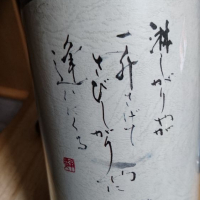 淋しがりやが
一升さげて
さびしがりやに
逢いにくる